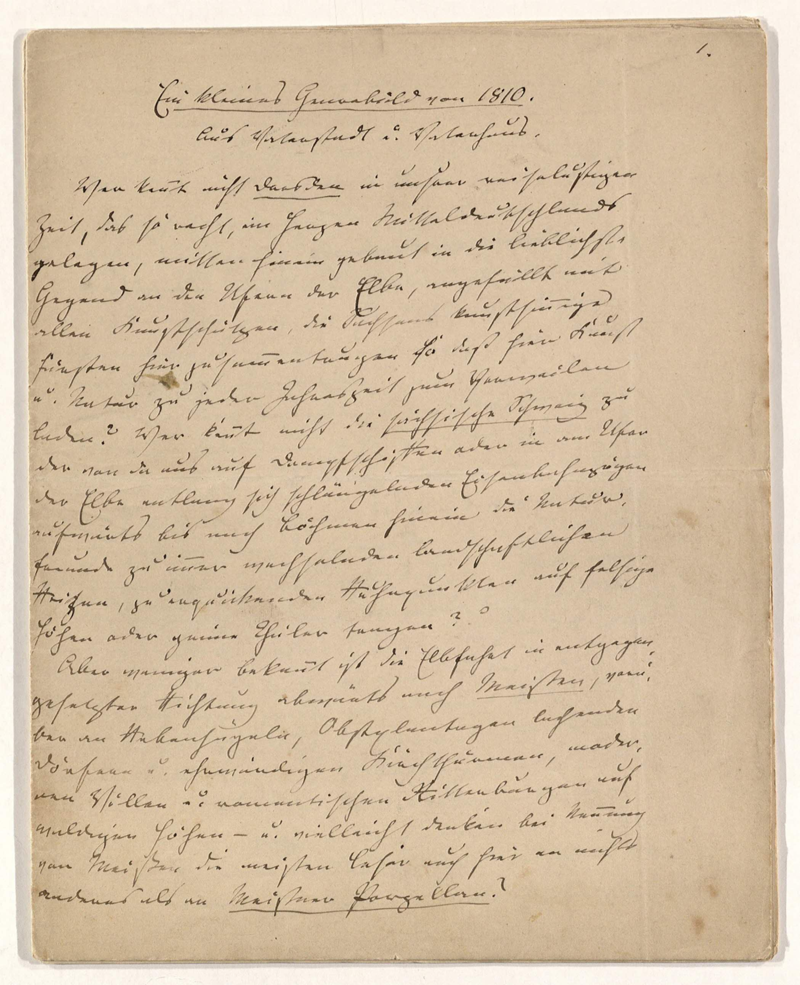 1.
Ein kleines Genrebild von 1810.
Aus Vaterstadt u. Vaterhaus.
Wer kennt nicht Dresden in unsrer reiselustigen
Zeit, das so recht, im Herzen Mitteldeutschlands
gelegen, mitten hinein gebaut in die lieblichste
Gegend an den Ufern der Elbe, angefüllt mit
allen Kunstschätzen, die Sachsens kunstsinnige
Fürsten hier zusammentrugen so daß hier Kunst
u. Natur zu jeder Jahreszeit zum Verweilen
laden? Wer kennt nicht die sächsische Schweiz zu
der von da aus auf Dampfschiffen oder in am Ufer
der Elbe entlang sich schlängelnden Eisenbahnzügen
aufwärts bis nach Böhmen hinein die Natur-
freunde zu immer wechselnden landschaftlichen
Reizen, zu erquickenden Ruhepunkten auf felsige
Höhen oder grüne Thäler tragen?
Aber weniger bekannt ist die Elbfahrt in entgegen-
gesetzter Richtung abwärts nach Meißen, vorü-
ber an Rebenhügeln, Obstplantagen lachenden
Dörfern u. ehrwürdigen Kirchthürmen, moder-
nen Villen u. romantischen Ritterburgen auf
waldigen Höhen – u. vielleicht denken bei Nennung
von Meißen die meisten Leser auch hier an nichts
anderes als an Meißner Porzellan?